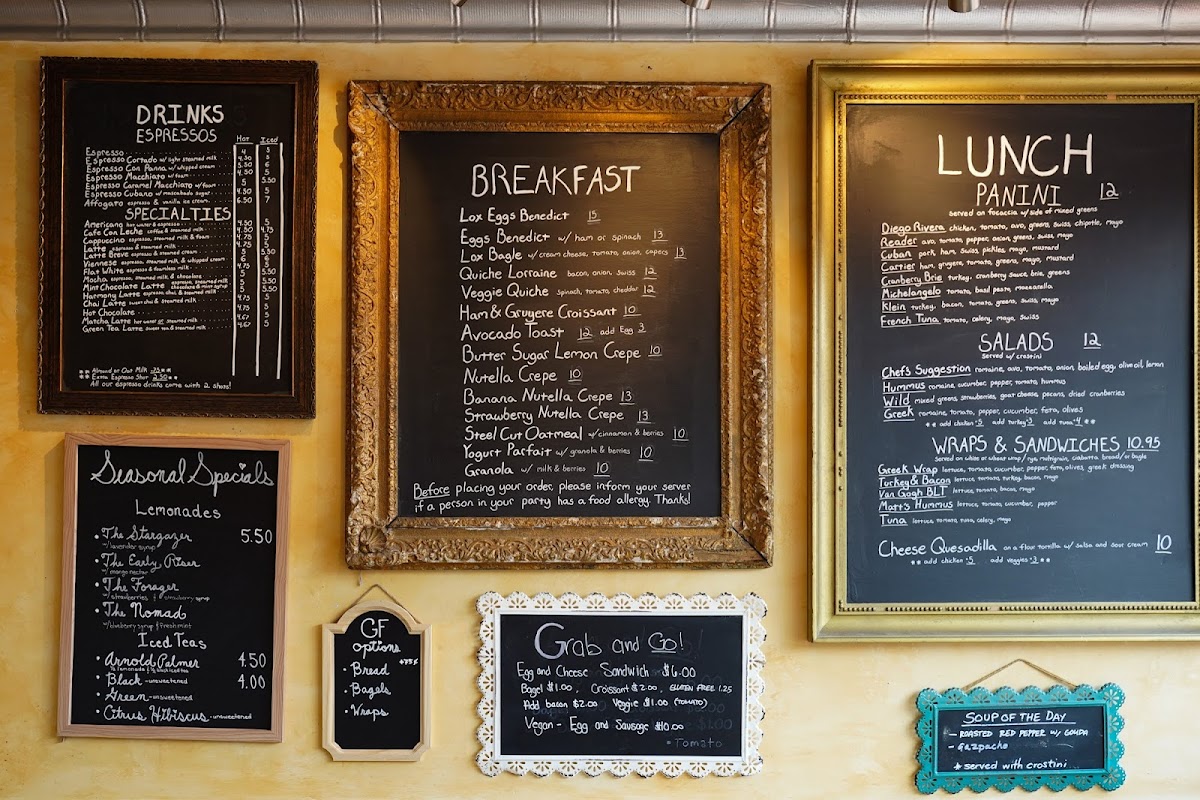 DRINKS
ESPRESSOS
Hot Iced
Espresso 4 5
Espresso Cortado w/ light steamed milk 4.50 5
Espresso Con Panna w/ whipped cream 5.50 6
Espresso Macchiato w/ foam 4.50 5
Espresso Caramel Macchiato w/ foam 5 5.50
Espresso Cubano w/ muscabado sugar 4.50 5
Affogato espresso & vanilla ice cream 6.50 7
SPECIALTIES
Americano hot water & espresso
Cafe Con Leche coffee & steamed milk
Cappuccino espresso, steamed milk & foam
Latte espresso & steamed milk
Latte Breve espresso & steamed cream
Viennese espresso, steamed milk, & whipped cream
Flat White espresso & foamless milk
Mocha espresso, steamed milk, & chocolate
Mint Chocolate Latte espresso, steamed milk, chocolate & mint syrup
Harmony Latte espresso, chai & steamed milk
Chai Latte sweet chai & steamed milk
Hot Chocolate
Matcha Latte hot water or steamed milk
Green Tea Latte sweet tea & steamed milk
** Almond or Oat Milk .75 **
** Extra Espresso Shot 2.50 **
All our espresso drinks come with 2 shots!
BREAKFAST
Lox Eggs Benedict 15
Eggs Benedict w/ ham or spinach 13
Lox Bagle w/ cream cheese, tomato, onion, capers 13
Quiche Lorraine bacon, onion, swiss 12
Veggie Quiche spinach, tomato, cheddar 12
Ham & Gruyere Croissant 10
Avocado Toast 12 add Egg 3
Butter Sugar Lemon Crepe 10
Nutella Crepe 10
Banana Nutella Crepe 13
Strawberry Nutella Crepe 13
Steel Cut Oatmeal w/ cinnamon & berries 10
Yogurt Parfait w/ granola & berries 10
Granola w/ milk & berries 10
Before placing your order, please inform your server
if a person in your party has a food allergy. Thanks!
LUNCH
PANINI 12
served on focaccia w/ side of mixed greens
Diego Rivera chicken, tomato, avo, greens, swiss, chipotle, mayo
Reader avo, tomato, pepper, onion, greens, swiss, mayo
Cuban pork, ham, swiss, pickles, mayo, mustard
Cartier ham, gruyere, tomato, greens, mayo, mustard
Cranberry Brie turkey, cranberry sauce, brie, greens
Michelangelo tomato, basil pesto, mozzarella
Klein turkey, bacon, tomato, greens, swiss, mayo
French Tuna tomato, celery, mayo, swiss
SALADS 12
served w/ crostini
Chef's Suggestion romaine, avo, tomato, onion, boiled egg, olive oil, lemon
Hummus romaine, cucumber, pepper, tomato, hummus
Wild mixed greens, strawberries, goat cheese, pecans, dried cranberries
Greek romaine, tomato, pepper, cucumber, feta, olives
** add chicken 5 add turkey 3 add tuna 4 **
WRAPS & SANDWICHES 10.95
Served on white or wheat wrap / rye, multigrain, ciabatta bread / or bagle
Greek Wrap lettuce, tomato, cucumber, pepper, feta, olives, greek dressing
Turkey & Bacon lettuce, tomato, turkey, bacon, mayo
Van Gogh BLT lettuce, tomato, bacon, mayo
Matt's Hummus lettuce, tomato, cucumber, pepper
Tuna lettuce, tomato, tuna, celery, mayo
Cheese Quesadilla on a flour tortilla w/ salsa and sour cream 10
** add chicken 5 add veggies 3 **
Seasonal Specials
Lemonades
• The Stargazer 5.50
w/ lavender syrup
• The Early Riser
w/ mango nectar
• The Forager
w/ strawberries & strawberry syrup
• The Nomad
w/ blueberry syrup & fresh mint
Iced Teas
• Arnold Palmer 4.50
½ lemonade & ½ black iced tea
• Black - unsweetened 4.00
• Green - unsweetened
• Citrus Hibiscus - unsweetened
GF
options
+.75¢
• Bread
• Bagels
• Wraps
Grab and Go!
Egg and Cheese Sandwich $6.00
Bagel $1.00, Croissant $2.00, GLUTEN FREE 1.25
Add bacon $2.00 Veggie $1.00 (TOMATO)
Vegan - Egg and Sausage $10.00
= Tomato
SOUP OF THE DAY
- ROASTED RED PEPPER W/ GOUDA
- Gazpacho
* served with crostini